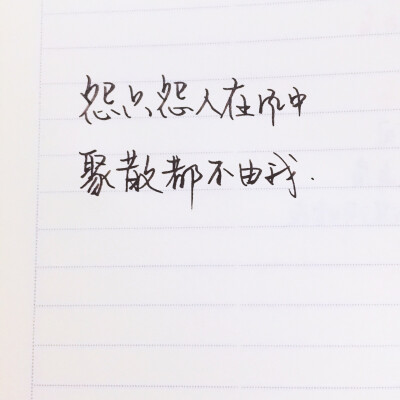 怨只怨人在风中
聚散都不由我.